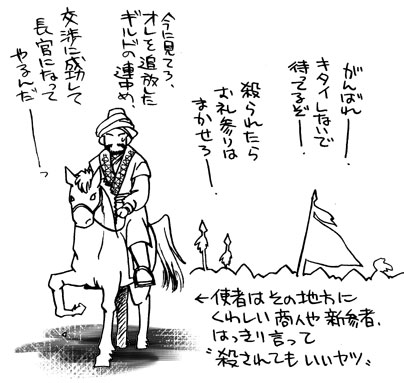 がんばれー
キタイしないで
待ってるぞー!
殺られたら
お礼参りは
まかせろー
今に見てろ、
オレを追放した
ギルドの連中め、
交渉に成功して
長官になって
やるんだーっ
←使者はその地方に
くわしい商人や新参者、
はっきり言って
"殺されてもいいヤツ"